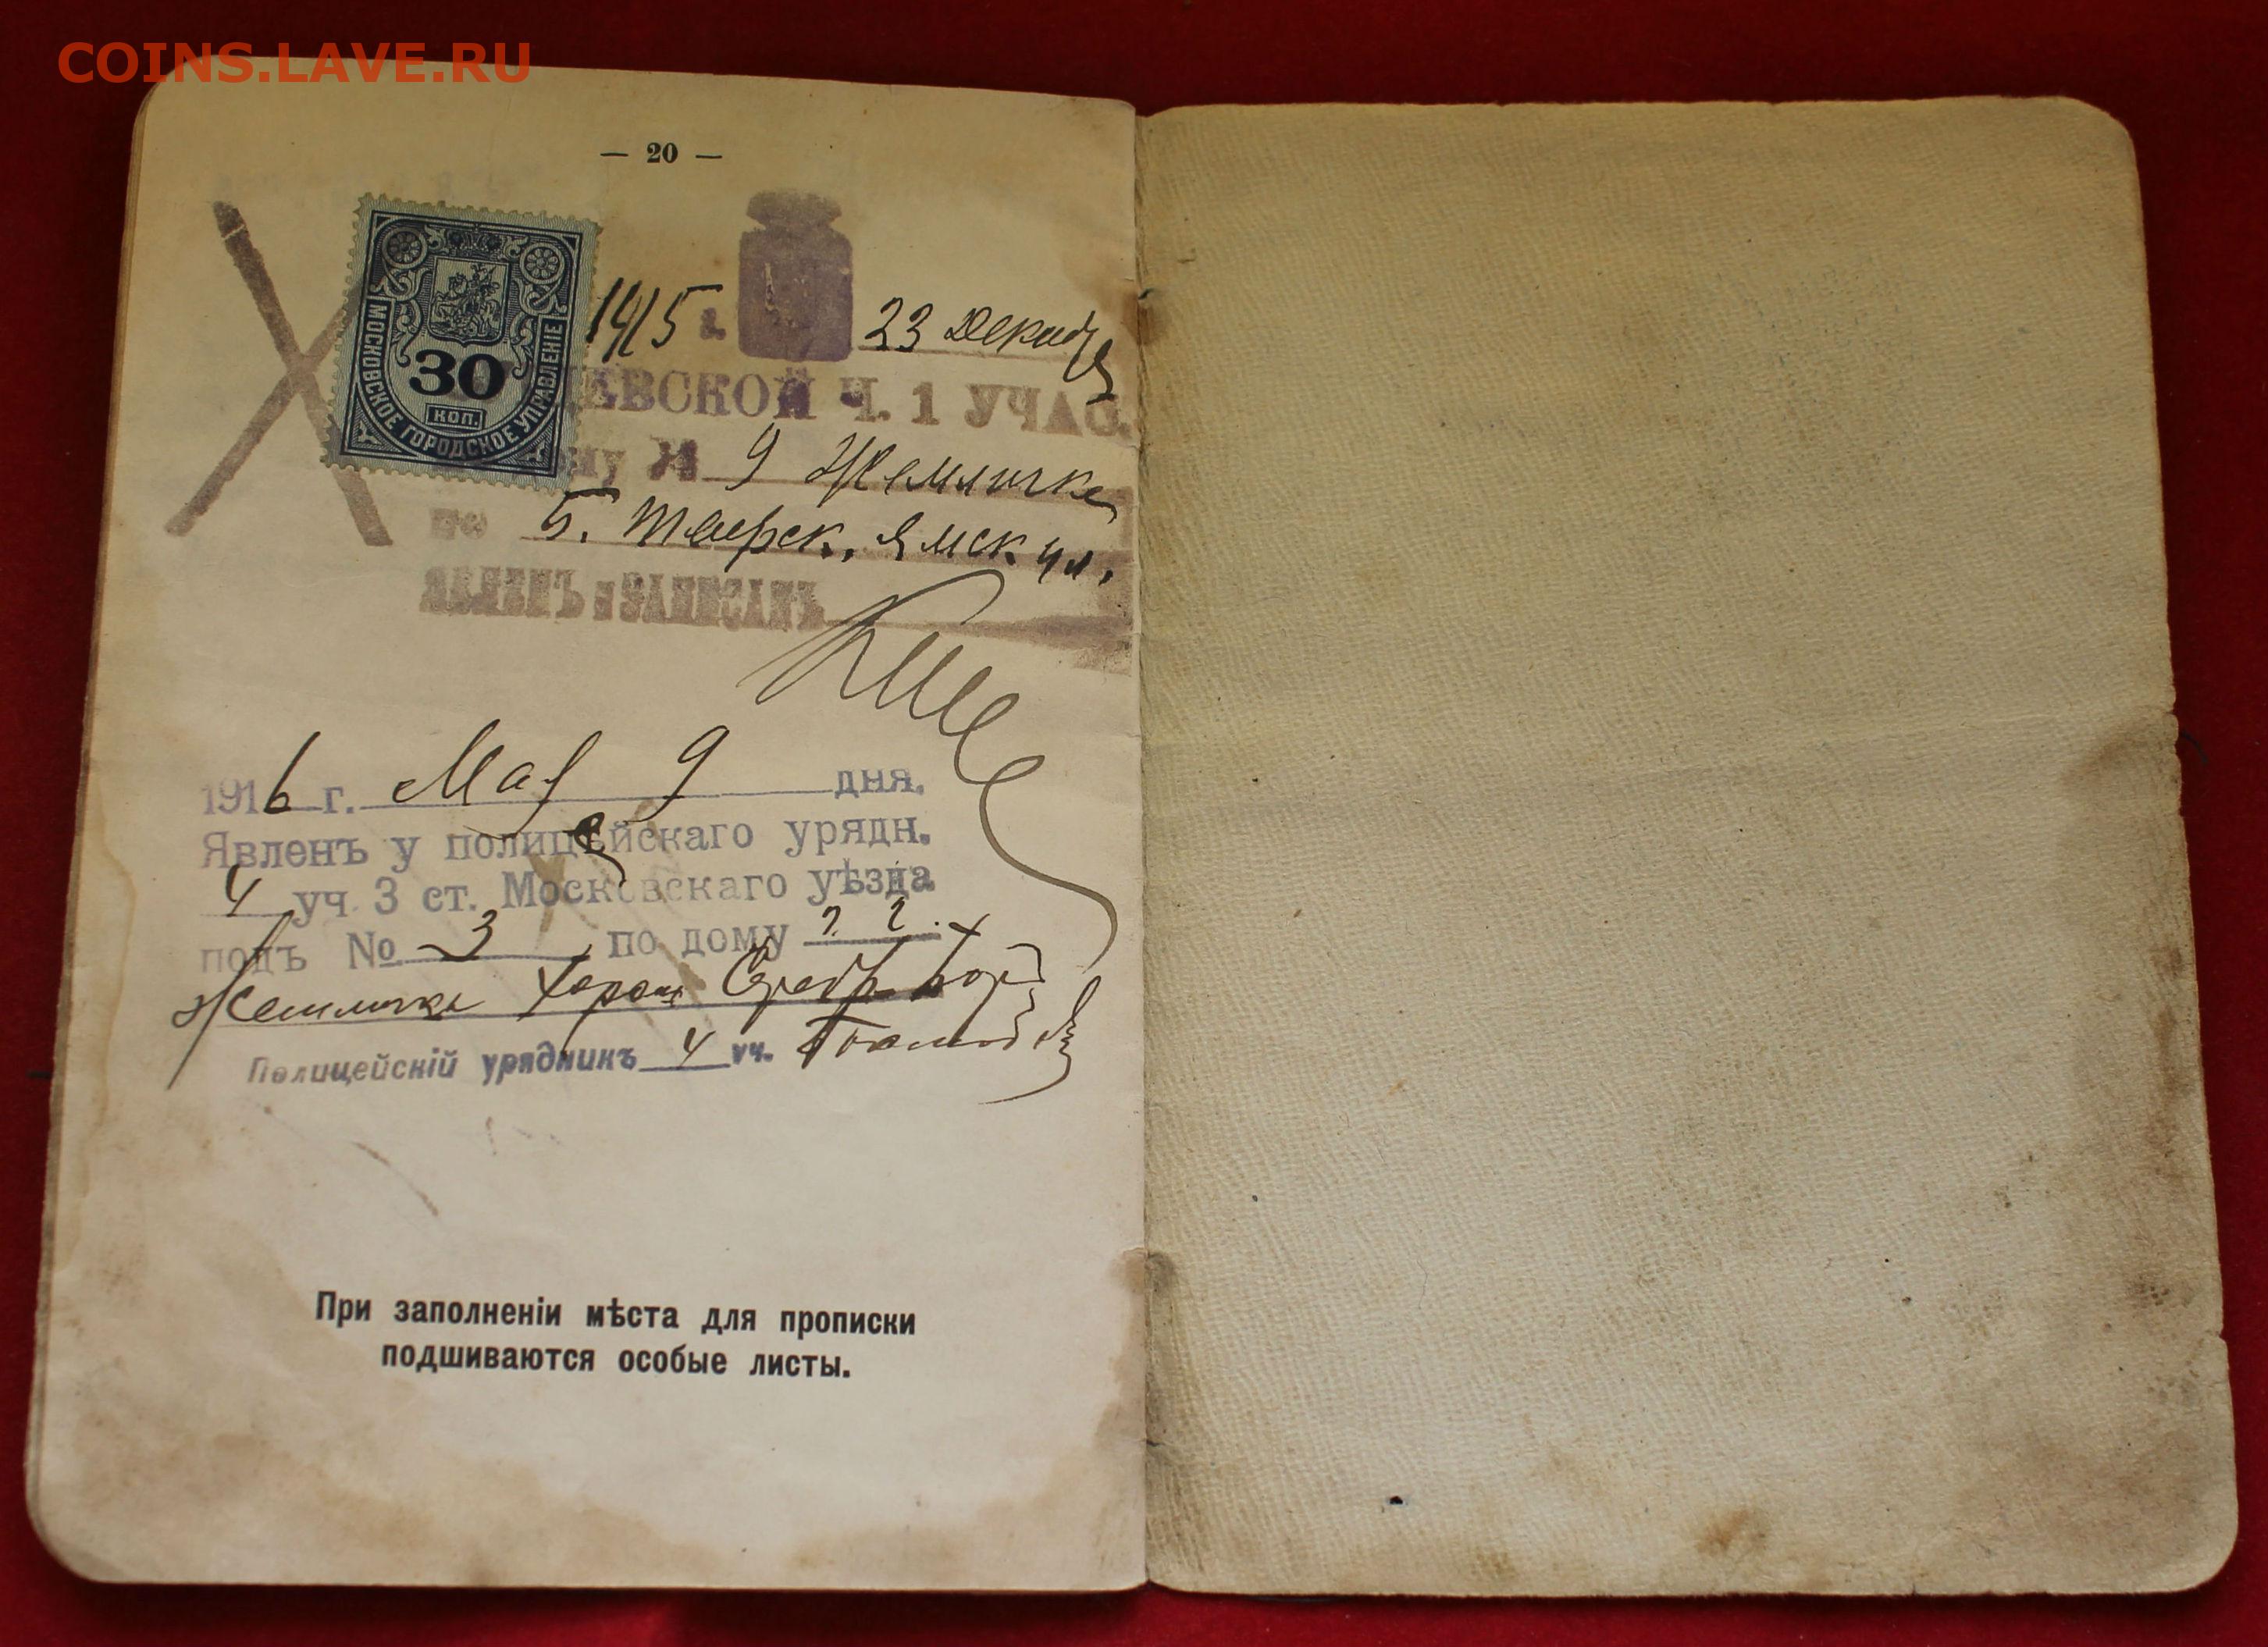 COINS.LAVE.RU
— 20 —
МОСКОВСКОЕ ГОРОДСКОЕ УПРАВЛЕНІЕ
30
КОП.
1915 г. 23 Декабр
ЕВСКОЙ Ч. 1 УЧАС.
му № 9 Жемлички
по Б. Тверск. Ямск ул.
ЯВЛЕНЪ и ЗАПИСАНЪ
1916 г. Мая 9 дня.
Явленъ у полицейскаго урядн.
4 уч. 3 ст. Московскаго уѣзда
подъ № 3 по дому г. г.
Жемлички Хорош Серебр бор
Полицейскій урядникъ 4 уч.
При заполненіи мѣста для прописки
подшиваются особые листы.